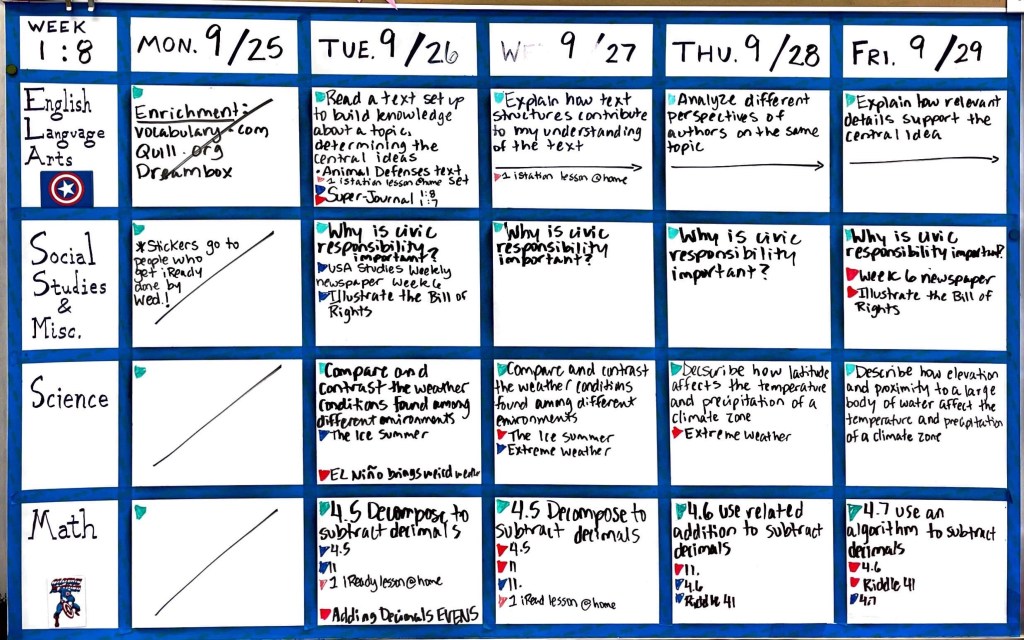 WEEK
1:8
MON. 9/25
TUE. 9/26
9/27
THU. 9/28
FRI. 9/29
English
Language
Arts
Enrichment:
vocabulary.com
Quill.org
Dreambox
Read a text set up
to build knowledge
about a topic,
determining the
central ideas
• Animal Defenses text
1 istation lesson @home set
Super-Journal 1:8
1:7
Explain how text
structures contribute
to my understanding
of the text
1 istation lesson @home
Analyze different
perspectives of
authors on the same
topic
Explain how relevant
details support the
central Idea
Social
Studies
&
Misc.
*Stickers go to
people who
get iReady
done by
Wed.!
Why is civic
responsibility
important?
USA Studies Weekly
newspaper Week 6
Illustrate the Bill of
Rights
Why is civic
responsibility
important?
Why is civic
responsibility
important?
Why is civic
responsibility important?
Week 6 newspaper
Illustrate the Bill of
Rights
Science
Compare and
contrast the weather
conditions found among
different environments
The Ice Summer
EL Niño brings weird weather
Compare and contrast
the weather conditions
found among different
environments
The Ice Summer
Extreme Weather
Decsribe how latitude
affects the temperature
and precipitation of a
climate zone
Extreme Weather
Describe how elevation
and proximity to a large
body of water affect the
temperature and precipitation
of a climate zone
Math
4.5 Decompose to
subtract decimals
4.5
11
1 iReady lesson @home
Adding Decimals EVENS
4.5 Decompose to
subtract decimals
4.5
11
11.
1 iRead lesson @home
4.6 use related
addition to subtract
decimals
11.
4.6
Riddle 41
4.7 use an
algorithm to subtract
decimals
4.6
Riddle 41
4.7